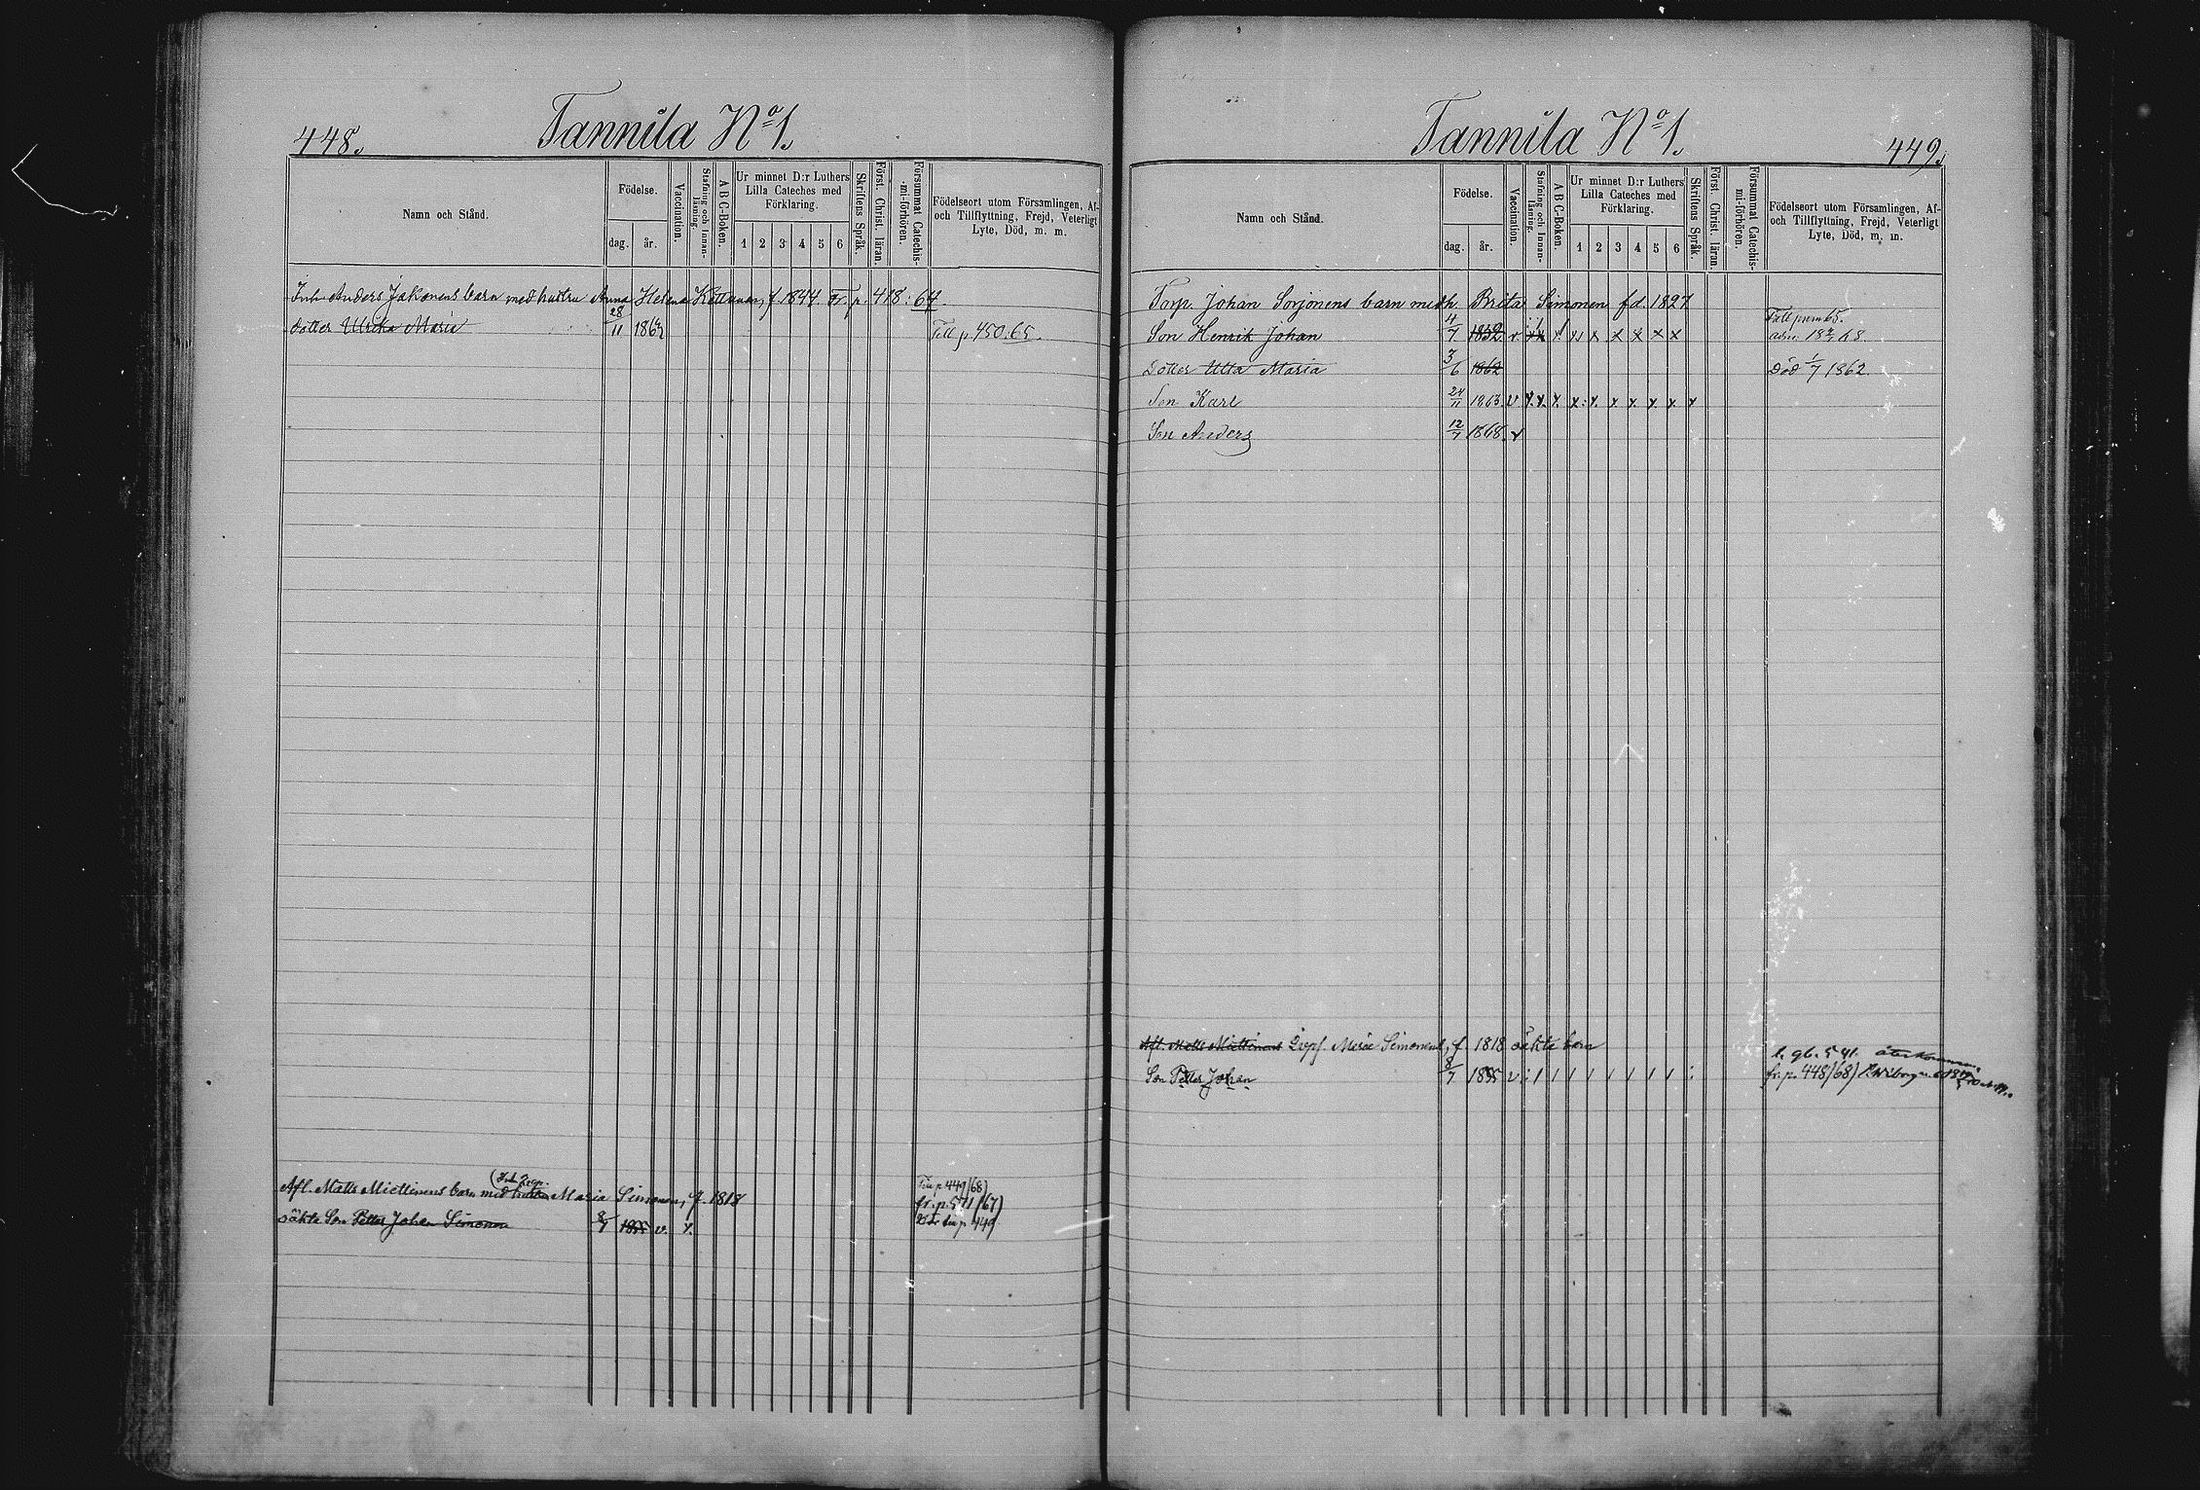 448.
Tannila No 1.
Namn och Stånd.
Födelse.
dag.
år.
Vaccination.
Stafning och Innan-läsning.
A B C-Boken.
Ur minnet D:r Luthers
Lilla Cateches med
Förklaring.
1 2 3 4 5 6
Skriftens Språk.
Först. Christ. läran.
Försummat Catechis-
mi-förhören.
Födelseort utom Församlingen, Af-
och Tillflyttning, Frejd, Veterligt
Lyte, Död, m. m.
Inh Anders Jakonens barn med hustru Anna Helena f. 1844 Fr. p. 428:64.
dotter Ulrika Maria 28/11 186 Till p 450.65.
Afl. Matts Miettinens barn med Maria Simonen, f. 1818
Till p 449/68)
fr. p. 571/67)
oäkta Son Petter Johan Simonen 8/7 1855 v. x.
p 449
Tannila No 1.
449.
Namn och Stånd.
Födelse.
dag.
år.
Vaccination.
Stafning och Innan-läsning.
A B C-Boken.
Ur minnet D:r Luthers
Lilla Cateches med
Förklaring.
1 2 3 4 5 6
Skriftens Språk.
Först. Christ. läran.
Försummat Catechis-
mi-förhören.
Födelseort utom Församlingen, Af-
och Tillflyttning, Frejd, Veterligt
Lyte, Död, m. m.
Torp. Johan Sorjonens barn med h. Brita Simonen fd. 1827
Son Henrik Johan 4/7 1852 v. x x x x x x x x x
Dotter Ulla Maria 3/6 1862 Död 1/7 1862.
Son Karl 24/11 1863 v x x x x x x x x x x
Son Anders 12/7 1868 v
Afl. Matts Miettinens Maria Simonens, f 1818 oäkta barn
Son Petter Johan 8/7 1855 v : 1 1 1 1 1 1 1 1 :
fr. p. 448/68)